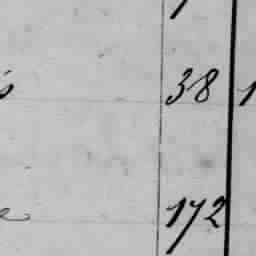 38 1
172